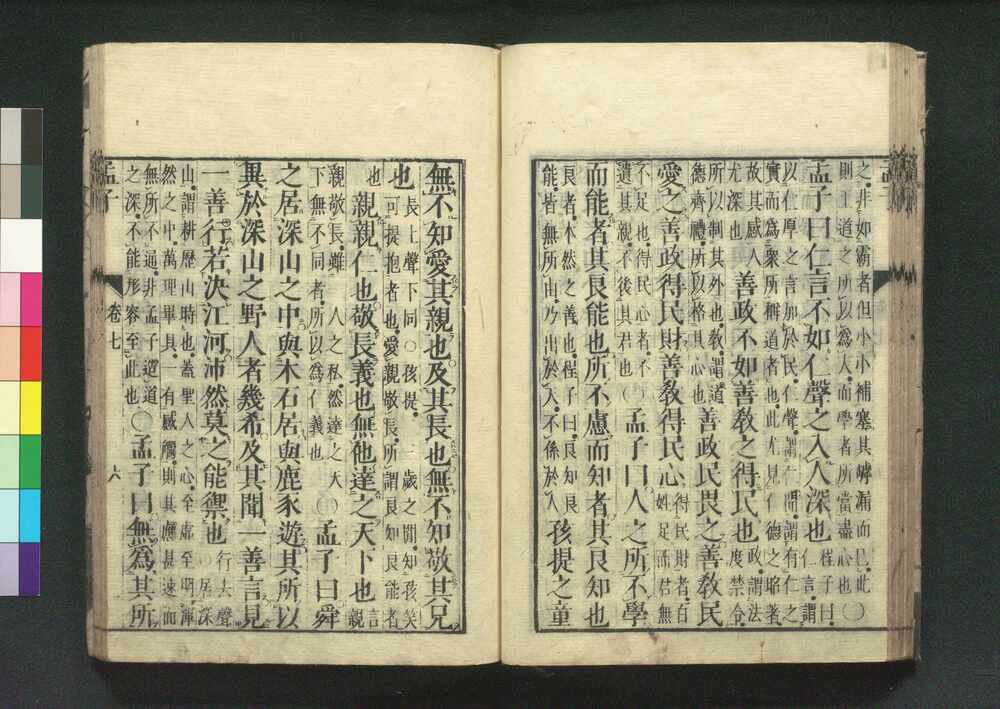 孟子
之。非如霸者但小小補塞其罅漏而已。此
則王道之所以爲大。而學者所當盡心也〇
孟子曰仁言不如仁聲之入人深也
程子曰。
仁言。謂
以仁厚之言加於民。仁聲。謂仁聞。謂有仁之
實而爲衆所稱道者也。此尤見仁德之昭著
故其感人
尤深也
善政不如善教之得民也
政。謂法
度禁令。
所以制其外也。教。謂道
德齊禮。所以格其心也
善政民畏之善教民
愛之善政得民財善教得民心
得民財者。百
姓足而君無
不足也。得民心者。不
遺其親。不後其君也
〇孟子曰人之所不學
而能者其良能也所不慮而知者其良知也
良者。本然之善也。程子曰。良知良
能。皆無所由。乃出於天。不係於人
孩提之童
無不知愛其親也及其長也無不知敬其兄
也
長上聲下同〇孩提。二三歲之間。知孩笑
可提抱者也。愛親敬長。所謂良知良能者
也
親親仁也敬長義也無他達之天下也
言
親
親敬長。雖一人之私。然達之天
下無不同者。所以爲仁義也
〇孟子曰舜
之居深山之中與木石居與鹿豕遊其所以
異於深山之野人者幾希及其聞一善言見
一善行若決江河沛然莫之能禦也
行去聲
〇居深
山。謂耕歷山時也。蓋聖人之心。至虛至明。渾
然之中。萬理畢具。一有感觸。則其應甚速。而
無所不通。非孟子造道
之深。不能形容至此也
〇孟子曰無爲其所
孟子
卷七
六